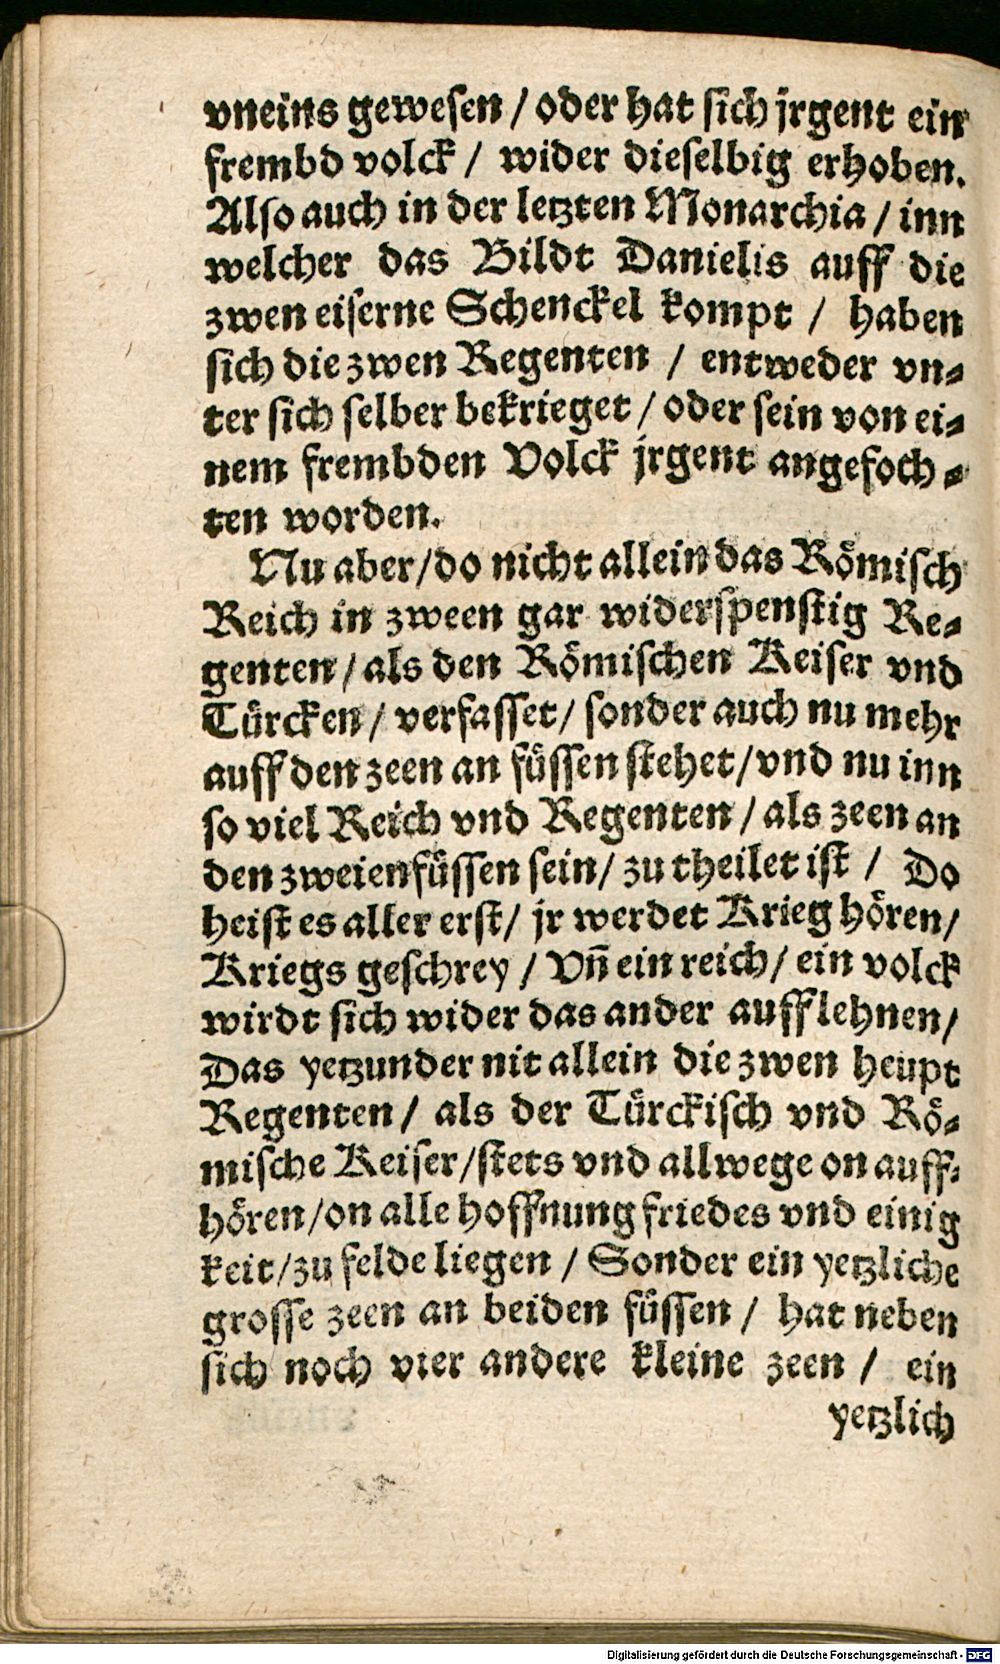 vneins gewesen / oder hat sich jrgent ein
frembd volck / wider dieselbig erhoben.
Also auch in der letzten Monarchia / inn
welcher das Bildt Danielis auff die
zwen eiserne Schenckel kompt / haben
sich die zwen Regenten / entweder vn⸗
ter sich selber bekrieget / oder sein von ei⸗
nem frembden Volck jrgent angefoch⸗
ten worden.
Nu aber / do nicht allein das Römisch
Reich in zween gar widerspenstig Re⸗
genten / als den Römischen Keiser vnd
Türcken / verfasset / sonder auch nu mehr
auff den zeen an füssen stehet / vnd nu inn
so viel Reich vnd Regenten / als zeen an
den zweienfüssen sein / zu theilet ist / Do
heist es aller erst / jr werdet Krieg hören /
Kriegs geschrey / Vñ ein reich / ein volck
wirdt sich wider das ander aufflehnen /
Das yetzunder nit allein die zwen heupt
Regenten / als der Türckisch vnd Rö⸗
mische Keiser / stets vnd allwege on auff⸗
hören / on alle hoffnung friedes vnd einig
keit / zu felde liegen / Sonder ein yetzliche
grosse zeen an beiden füssen / hat neben
sich noch vier andere kleine zeen / ein
yetzlich
Digitalisierung gefördert durch die Deutsche Forschungsgemeinschaft - DFG